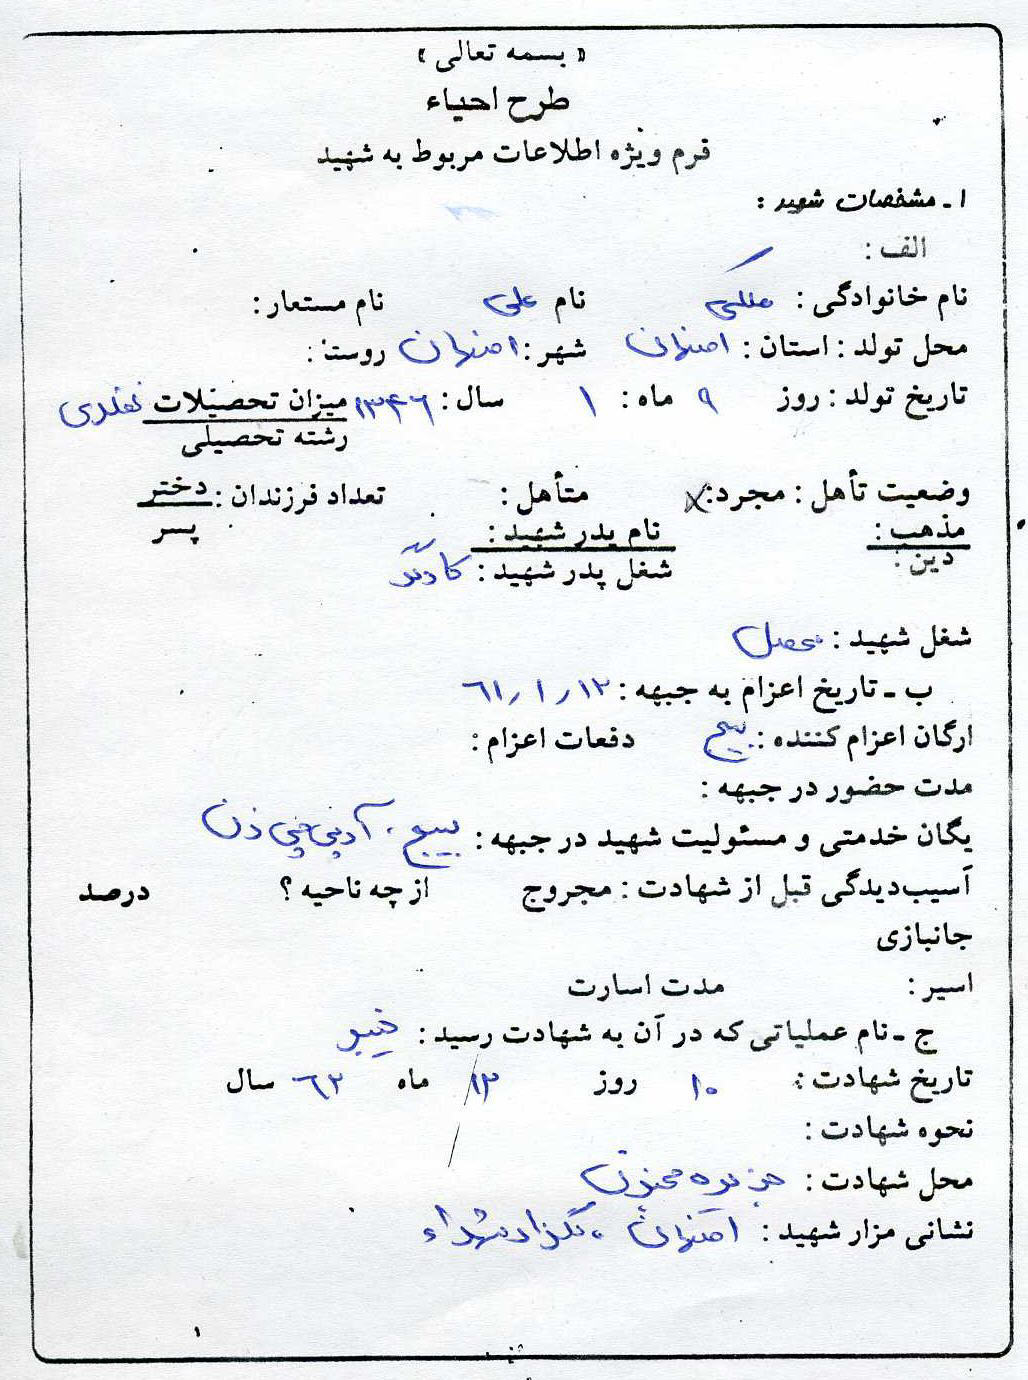 « بسمه تعالی »
طرح احیاء
فرم ویژه اطلاعات مربوط به شهید
۱ ـ مشخصات شهید :
الف :
نام خانوادگی : ملکی نام علی نام مستعار :
محل تولد : استان : اصفهان شهر : اصفهان روستا :
تاریخ تولد : روز ۹ ماه : ۱ سال : ۱۳۴۶ میزان تحصیلات
رشته تحصیلی
وضعیت تأهل : مجرد : × متأهل : تعداد فرزندان : دختر
مذهب : نام پدر شهید : پسر
دین : شغل پدر شهید :
شغل شهید : محصل
ب ـ تاریخ اعزام به جبهه : ۶۱/۱/۱۲
ارگان اعزام کننده : بسیج دفعات اعزام :
مدت حضور در جبهه :
یگان خدمتی و مسئولیت شهید در جبهه : بسیج ، آرپی جی زن
آسیب‌دیدگی قبل از شهادت : مجروح از چه ناحیه ؟ درصد
جانبازی
اسیر : مدت اسارت
ج ـ نام عملیاتی که در آن به شهادت رسید : خیبر
تاریخ شهادت : ۱۰ روز ۱۲ ماه ۶۲ سال
نحوه شهادت :
محل شهادت : جزیره مجنون
نشانی مزار شهید : اصفهان ، گلزار شهداء
۱